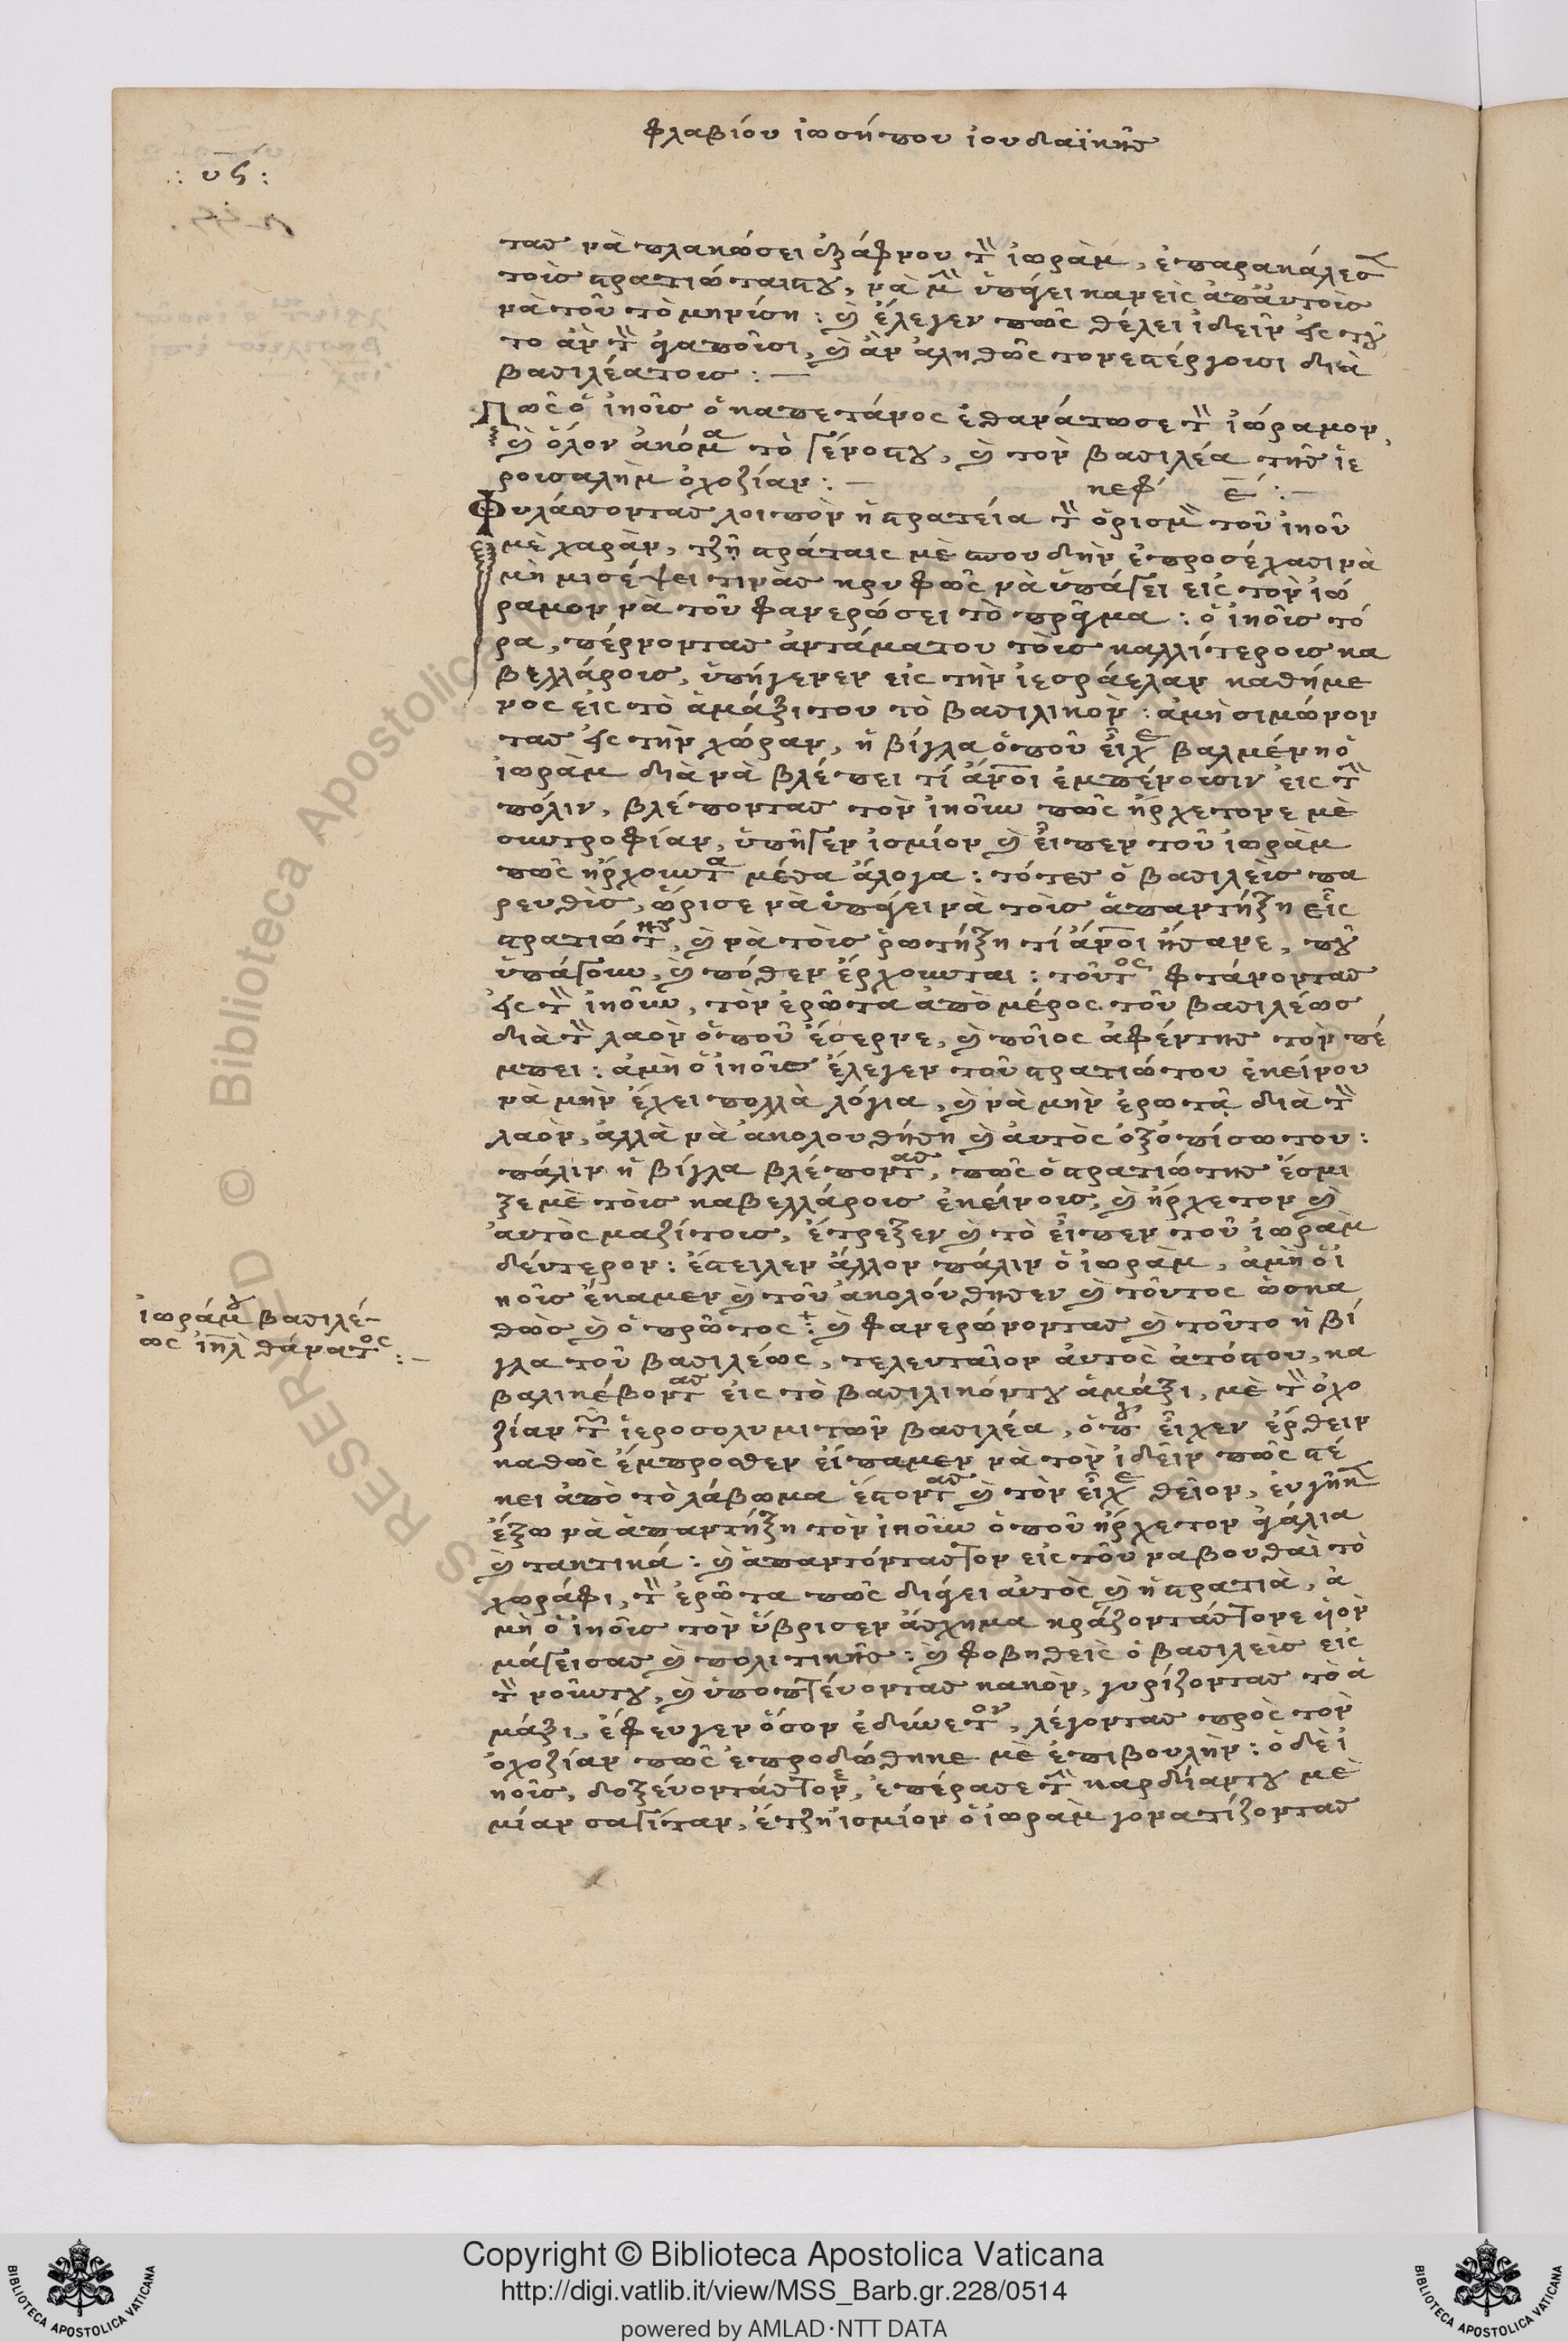 φλαβίου ἰωσήπου ἰουδαϊκῆς
υϛ:
τας νὰ πλακώσει ἐξάφνου τὸν ἰωρὰμ, ἐπαρακάλεσε
τοῖς στρατιώταις του, νὰ μὴν ὑπάγει κανεὶς ἀπ' αὐτοῖς
νὰ τοῦ τὸ μηνύση: καὶ ἔλεγεν πῶς θέλει ἰδεῖν εἰς τοῦ
το ἀν τὸν ἀγαποῦσι, καὶ ἀν ἀληθῶς τον στέργουσι διὰ
βασιλέα τους: —
Πῶς ὁ ἰηοῦς ὁ καπετάνος ἐθανάτωσε τὸν ἰώραμον,
καὶ ὅλον ἀκόμα τὸ γένος του, καὶ τὸν βασιλέα τῆς ἱε
ρουσαλὴμ ὀχοζίαν: — κεφ ε: —
Φυλάττοντας λοιπὸν ἡ στρατεία τὸν ὁρισμὸν τοῦ ἰηοῦ
μὲ χαρὰν, τζῆ στράταις μὲ σπουδὴν ἐπροσέχασι νὰ
μὴ μισέψει τινὰς κρυφῶς νὰ ὑπάγει εἰς τὸν ἰώ
ραμον νὰ τοῦ φανερώσει τὸ πρᾶγμα: ὁ ἰηοῦς τό
ρα, πέρνοντας ἀντάμα του τοὺς καλλίτερους κα
βελλάρους, ὑπήγενεν εἰς τὴν ἰεσράελαν καθήμε
νος εἰς τὸ ἁμάξι του τὸ βασιλικὸν: ἀμὴ σιμώνον
τας εἰς τὴν χώραν, ἡ βίγλα ὁποῦ εἶχε βαλμένη ὁ
ἰωρὰμ διὰ νὰ βλέπει τί ἄνοι ἐμπένουσιν εἰς τὴν
πόλιν, βλέποντας τὸν ἰηοῦν πῶς ἤρχετονε μὲ
συντροφίαν, ὑπῆγεν ἰσμίον καὶ εἶπεν τοῦ ἰωρὰμ
πῶς ἤρχουντα μέσα ἄλογα: τότες ὁ βασιλεὺς πα
ρευθὺς, ὥρισε νὰ ὑπάγει νὰ τοὺς ἀπαντήξη εἷς
στρατιώτης, καὶ νὰ τοὺς ῥωτήξη τί ἄνοι ἤσανε, ποῦ
ὑπάγουν, καὶ πόθεν ἔρχουνται: τοῦτος φτάνοντας
εἰς τὸν ἰηοῦν, τὸν ἐρῶτα ἀπὸ μέρος τοῦ βασιλέως
διὰ τὸν λαὸν ὁποῦ ἔσερνε, καὶ ποῖος ἀφέντης τὸν πέ
μπει: ἀμὴ ὁ ἰηοῦς ἔλεγεν τοῦ στρατιώτου ἐκείνου
νὰ μὴν ἔχει πολλὰ λόγια, καὶ νὰ μὴν ἐρωτᾷ διὰ τὸν
λαὸν, ἀλλὰ νὰ ἀκολουθήση καὶ αὐτὸς ὀξοπίσω του:
πάλιν ἡ βίγλα βλέποντας, πῶς ὁ στρατιώτης ἔσμι
ξε μὲ τοὺς καβελλάρους ἐκείνους, καὶ ἤρχετον καὶ
αὐτὸς μαζί τους, ἔτρεξεν καὶ τὸ εἶπεν τοῦ ἰωρὰμ
δεύτερον: ἔστειλεν ἄλλον πάλιν ὁ ἰωρὰμ, ἀμὴ ὁ ἰ
ηοῦς ἔκαμεν καὶ τοῦ ἀκολούθησεν καὶ τοῦτος ὡσκα
θὼς καὶ ὁ πρῶτος: καὶ φανερώνοντας καὶ τοῦτο ἡ βί
γλα τοῦ βασιλέως, τελευταῖον αὐτὸς ἀτόςτου, κα
βαλικέβοντας εἰς τὸ βασιλικόντου ἁμάξι, μὲ τὸν ὀχο
ζίαν τὸν ἱεροσολυμιτῶν βασιλέα, ὁποῦ εἶχεν ἔρθειν
καθὼς ἔμπροσθεν εἴπαμεν νὰ τὸν ἰδεῖν πῶς στέ
κει ἀπὸ τὸ λάβωμα ἔστοντας καὶ τὸν εἶχε θεῖον, εὐγῆκε
ἔξω νὰ ἀπαντήξη τὸν ἰηοῦν ὁποῦ ἤρχετον ἀγάλια
καὶ τακτικά: καὶ ἀπαντόντας τον εἰς τοῦ ναβουθαὶ τὸ
χωράφι, τὸν ἐρῶτα πῶς διάγει αὐτὸς καὶ ἡ στρατιὰ, ἀ
μὴ ὁ ἰηοῦς τὸν ὕβρισεν ἄσχημα κράζοντάς τονε υἱὸν
μάγεισας καὶ πολιτικῆς: καὶ φοβηθεὶς ὁ βασιλεὺς εἰς
τὸν νοῦντου, καὶ ὑποπτεύοντας κακὸν, γυρίζοντας τὸ ἁ
μάξι, ἔφευγεν ὅσον ἐδύνετον, λέγοντας πρὸς τὸν
ὀχοζίαν πῶς ἐπροδώθηκε μὲ ἐπιβουλὴν: ὁ δὲ ἰ
ηοῦς, δοξεύοντάς τονε, ἐπέρασε τὴν καρδίαντου μὲ
μίαν σαγίταν, ἔτζη ἰσμίον ὁ ἰωρὰμ γονατίζοντας
ἰωράμου βασιλέ-
ως ἰηλ θάνατος: —
Copyright © Biblioteca Apostolica Vaticana
http://digi.vatlib.it/view/MSS_Barb.gr.228/0514
powered by AMLAD·NTT DATA